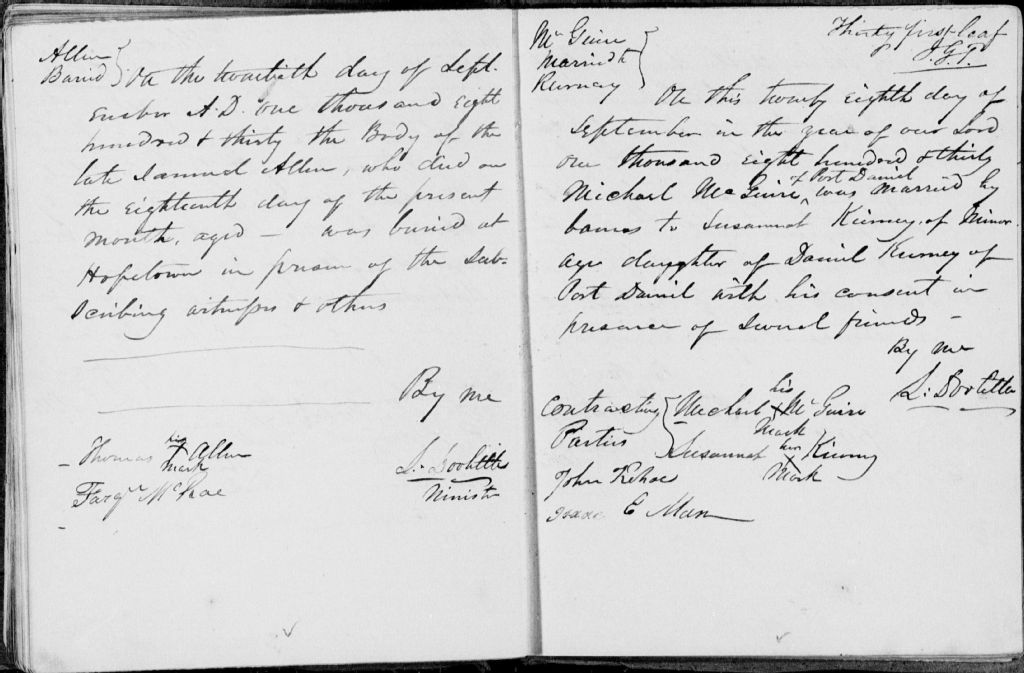 Allen
Buried
On the twentieth day of Sept.
ember A.D. one thousand eight
hundred & thirty the Body of the
late Samuel Allen, who died on
the eighteenth day of the present
month, aged — was buried at
Hopetown in presence of the sub-
scribing witnesses & others
By me
Thomas his X mark Allen
Farqr McRae
L. Doolittle
Minister
Mc Guire
Married to
Kurney
Thirty first leaf
J.G.T.
On this twenty eighth day of
September in the year of our Lord
one thousand eight hundred & thirty
Michael McGuire of Port Daniel was married by
banns to Susannah Kurney, of minor
age daughter of Daniel Kurney of
Port Daniel with his consent in
presence of several friends —
By me
L: Doolittle
Contracting
Parties
Michael his X mark McGuire
Susannah her X mark Kurney
John Kehoe
Isaac C Man